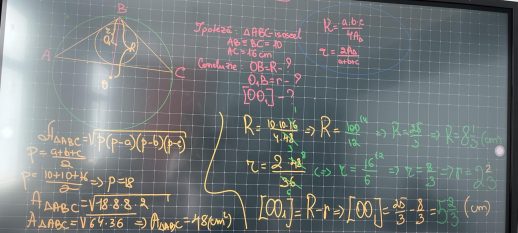 B
A
C
O
Ipoteză: ΔABC-isoscel
AB = BC = 10
AC = 16 cm
Concluzie: OB=R-?
O₁B=r-?
[OO₁]-?
R = a·b·c / 4A_Δ
r = 2A_Δ / a+b+c
A_ΔABC = √p(p-a)(p-b)(p-c)
p = a+b+c / 2
p = 10+10+16 / 2 => p=18
A_ΔABC = √18·8·8·2
A_ΔABC = √64·36 => A_ΔABC = 48 (cm²)
R = 10·10·16 / 4·48 => R = 100 / 12 => R = 25/3 => R = 8 1/3 (cm)
r = 2·48 / 36 <=> r = 16/6 => r = 8/3 => r = 2 2/3
[OO₁] = R-r => [OO₁] = 25/3 - 8/3 = 5 2/3 (cm)